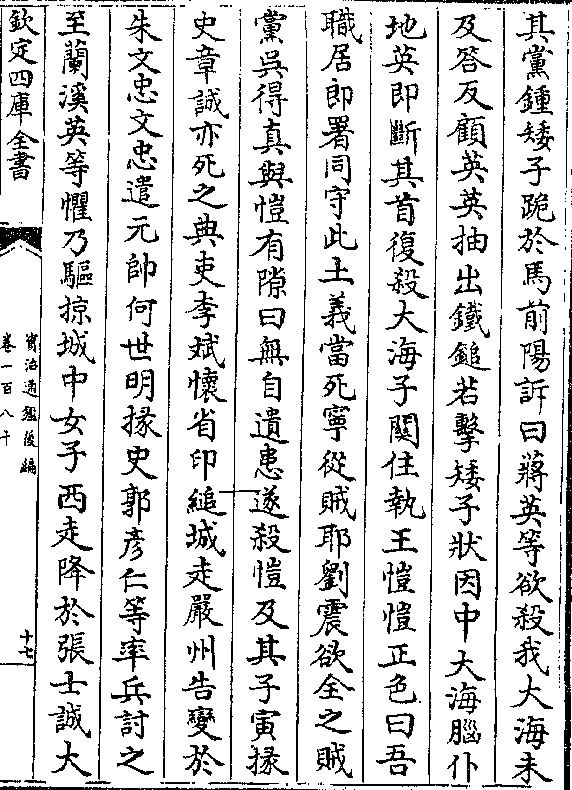 其黨鍾矮子跪於馬前陽訴曰蔣英等欲殺我大海未
及答反顧英英抽出鐵鎚若擊矮子狀因中大海腦仆
地英即斷其首復殺大海子關住執王愷愷正色曰吾
職居郎署同守此土義當死寧從賊耶劉震欲全之賊
黨吳得真與愷有隙曰無自遺患遂殺愷及其子寅掾
史章誠亦死之典吏李斌懷省印縋城走嚴州告變於
朱文忠文忠遣元帥何世明掾史郭彦仁等率兵討之
至蘭溪英等懼乃驅掠城中女子西走降於張士誠大
欽定四庫全書
資治通鑑後編
卷一百八十
十七